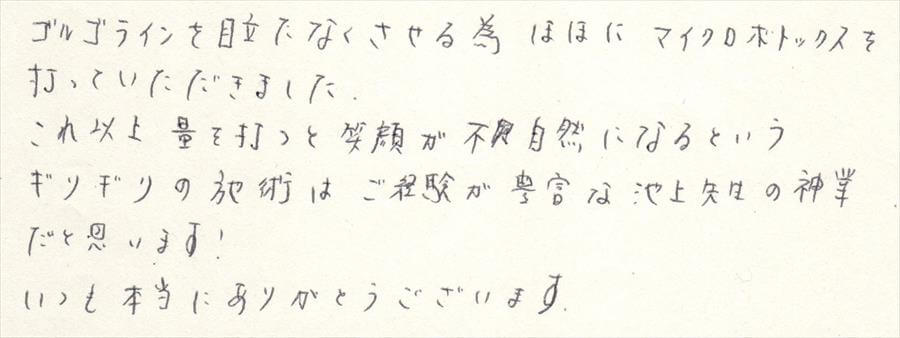 ゴルゴラインを目立たなくさせる為 ほほに マイクロボトックスを
打っていただきました.
これ以上 量を打つと 笑顔が 不自然になるという
ギリギリの施術は ご経験が豊富な池上先生の神業
だと思います!
いつも本当にありがとうございます.